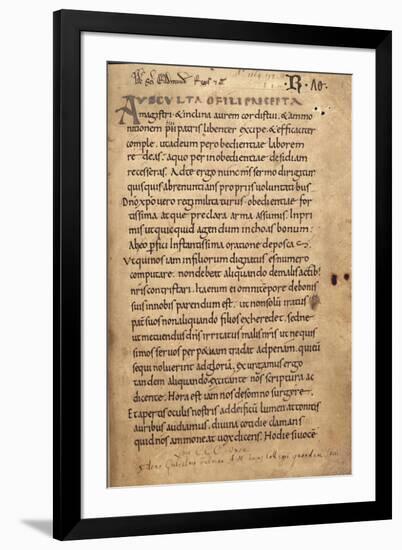 ·B·Λο·
AUSCULTA O FILI PRECEPTA
magistri · & inclina aurem cordis tui · & ammo
nitionem pii patris libenter excipe · & efficaciter
comple · ut ad eum per obedientiae laborem
redeas · a quo per inobedientiae desidiam
recesseras · Ad te ergo nunc m̅s sermo dirigitur
quisquis abrenuntians propriis voluntatibus
Dn̅o xp̅o vero regi militaturus · obedientiae for
tissima atque preclara arma assumis · Inpri
mis ut quicquid agendum inchoas bonum ·
Ab eo p̱fici instantissima oratione deposcas
Ut qui nos iam in filiorum dignatus es numero
computare · non debeat aliquando de malis actib;
nr̅is contristari · Ita enim ei omni tempore de bonis
suis in nobis parendum est · ut non solu̅ iratus
pat̅ suos non aliquando filios exheredet · sed ne
ut metuendus dn̅s irritatus malis nr̅is ut nequis
simos servos perpetuam tradat ad penam · qui eu̅
sequi noluerint ad gloria̅ · Exurgamus ergo
tandem aliquando excitante nos scriptura ac
dicente · Hora est iam nos de somno surgere ·
Et apertis oculis nostris ad deificu̅ lumen attonitis
auribus audiamus · divina cotidie clamans
quid nos ammoneat vox dicens · Hodie si voce̅